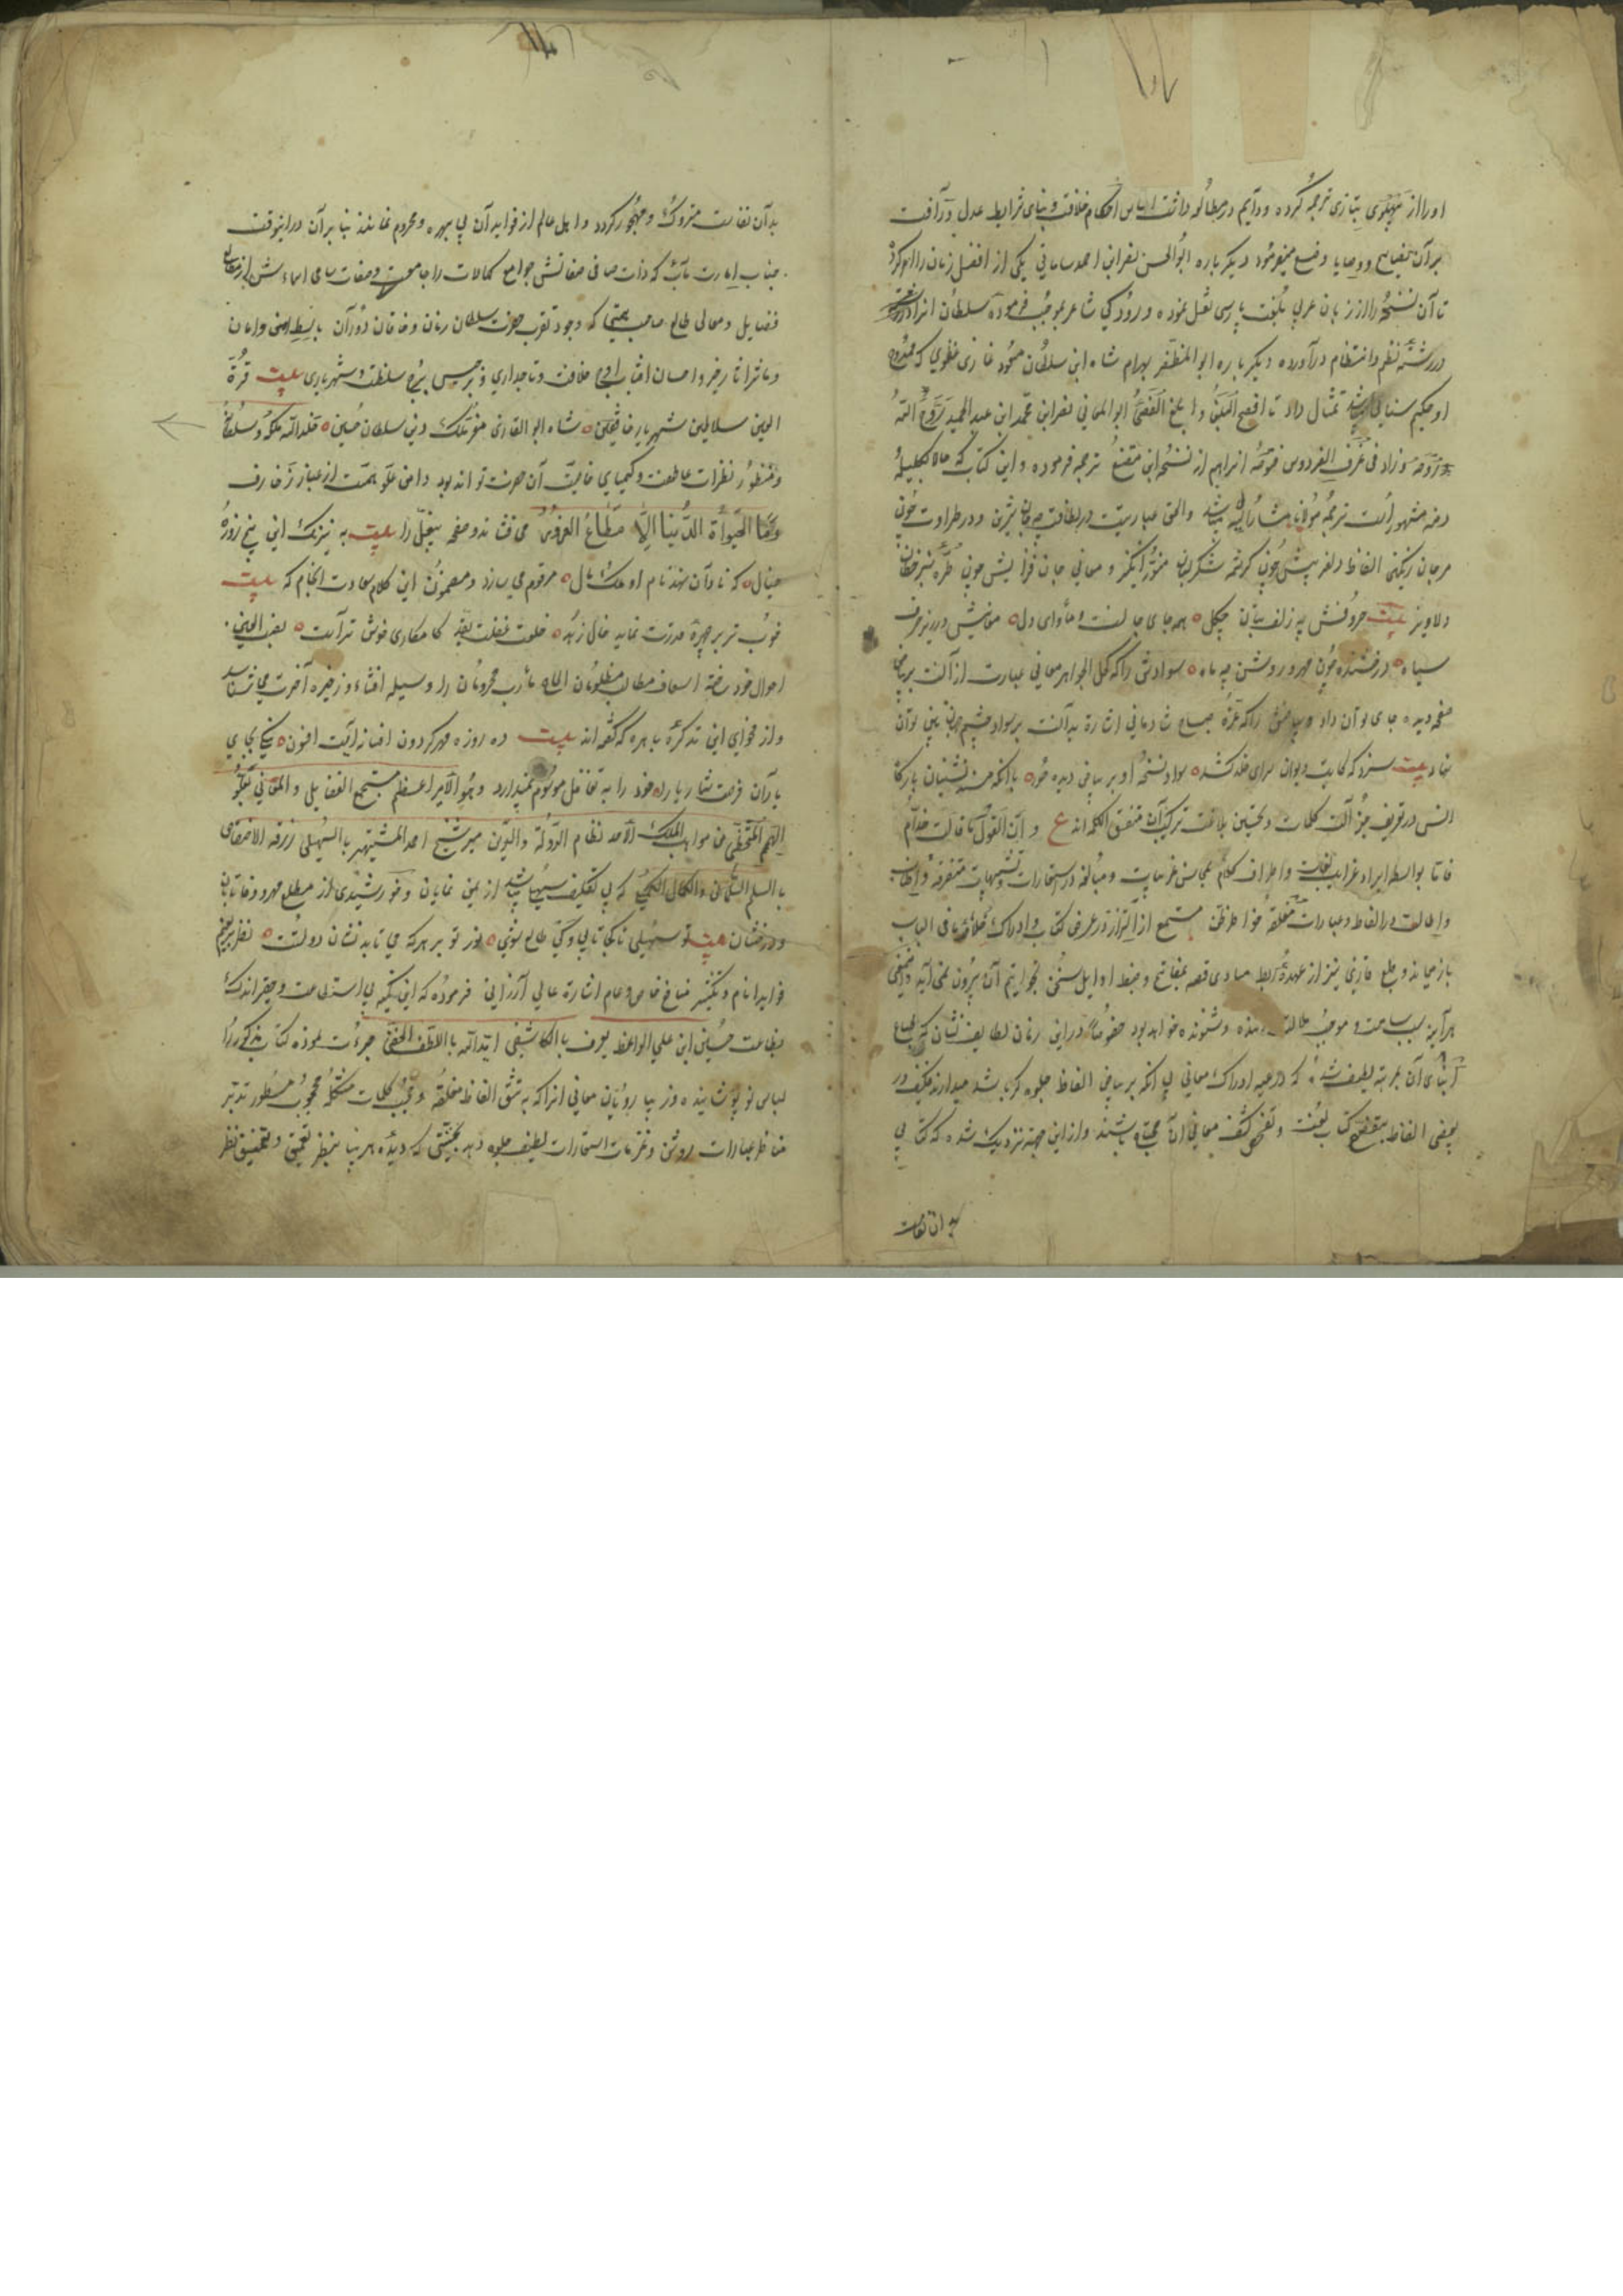 او را از پهلوی بتازی ترجمه کرده و دایم در مطالعه داشت اساس احکام خلافت و بنای شرایط عدل و رأفت
بر آن نصایح و وصایا وضع میفرمود و دیگر باره ابوالحسن نصر ابن احمد سامانی یکی از افضل زمان را امر کرد
تا آن نسخه را از زبان عربی بلغت پارسی نقل نموده و رودکی شاعر بموجب فرموده سلطان انرا
در رشته نظم و انتظام در آورده و دیگر باره ابو المظفر بهرام شاه ابن سلطان مسعود غازی غزنوی که ممدوح
او حکیم سنایی مثال داد تا افصح البلغا و ابلغ الفصحا ابو المعانی نصر ابن محمد ابن عبد الحمید روح الله
روحه و زاد فی غرف الفردوس فتوحه انرا هم از نسخه ابن مقنع ترجمه فرموده و این کتاب که حالا بکلیله
دمنه مشهور است ترجمه مولانا مشار الیه میباشد و الحق عبارتیست در لطافت چو جان شیرین و در طراوت چون
مرجان رنگین الفاظ دلفریبش چون کرشمه شکر لبان شورانگیز و معانی جان فزایش چون طره شیرین خطان
دلاویز بیت حروفش چه زلف بتان چگل ٥ همه جای جانست و ماوای دل ٥ معانیش در زیر حرف
سیاه ٥ درخشنده چون مهر و روشن چه ماه ٥ سوادش را که کحل الجواهر معانی عبارت از آنست بر بیاض
صفحه دیده جای توان داد و بیاضش را که غره صباح شادمانی اشارة بدآنست بر سواد چشم جهان بین توان
نهاد بیت سزد که کاتب دیوان سرای خلد کشد ٥ سواد نسخه او بر بیاض دیده حور ٥ با انکه مسند نشینان بارگاه
انس در تعریف جزالت کلمات و تحسین بلاغت ترکیب آن متفق الکلمه اند ع و ان القول ما قالت حذام
فاتا بواسطه ایراد غرایب لغات و اطراف کلام بمحاسن عربیات و مبالغه در استعارات و تشبیهات متفرقه و اطناب
و اطالت در الفاظ و عبارات مغلقه خواطر مستمع از التزاز در عرض کتاب و ادراک خلاصه ما فی الباب
باز میماند و طبع قاری نیز از عهده ربط مبادی قصه بمقاطع و ضبط اوایل سخن بخواتیم آن بیرون نمی آید و این معنی
هرآینه سبب سآمت و موجب ملالت خواننده و شنونده خواهد بود خصوصا در این زمان لطایف نشان که طباع
ابنای آن بمرتبه لطیف شده که داعیه ادراک معانی بی انکه بر بیاض الفاظ جلوه گر باشد میدارند فکیف در
بعضی الفاظ بتفحص کتاب لغت و تفحص کشف معانی آن محتاج باشند و از این جهة نزدیک شده که کتابی
بدان نفاست
بدآن نفاست متروک و مهجور گردد و اهل عالم از فواید آن بی بهره و محروم نمانند بنا بر آن در اینوقت
جناب امارت مآب که ذات صافی صفاتش جوامع کمالات را جامعست و صفات سامی اسماءش از مطالع
فضایل و معالی طالع صاحب همتی که وجود تقرب حضرت سلطان زمان و خاقان دوران باسط امن و امان
و ناشر آثار خیر و احسان افتاب اوج خلافت و تاجداری و برجیس برج سلطنت و شهریاری بیت قرة
العین سلاطین شهریار خافقین ٥ شاه ابو الغازی معز ملک و دین سلطان حسین ٥ خلد الله ملکه و سلطانه
و منظور نظرات عاطفت و کیمیای خاصیت آن حضرت تواند بود دامن علو همت از غبار زخارف
و ما الحیوة الدنیا الا متاع الغرور می فشاند و صفحه بیت به نیرنگ این پنج روزه
خیال ٥ که نادان نهد نام او ملک و مال ٥ مرقوم می سازد و مضمون این کلام سعادت انجام که بیت
خوب تر بر چهره قدرت نماید خال زهد ٥ خلعت عفت بقد کامکاری خوش تر آست ٥ نصب العین
احوال خود ساخته اسعاف مطالب مظلومان انجاح مآرب محرومان را وسیله اقتناء ذخیره آخرت می شناسد
و از فحوای این تذکره باهره که گفته اند بیت ده روزه مهر گردون افسانه ایست افسون ٥ نیکی بجای
یاران فرصت شمار یارا ٥ خود را به تغافل موسوم نمیدارد و هو الامیر اعظم مستجمع الفضایل و المعانی بعلو
الهمم المختص من مواهب الملک الاحد نظام الدولة و الدین میر شیخ احمد المشتهر بالسهیلی رزقه الاختصاص
بالسلم السلمانی و الکمال الکمیلی که بی تکلف سهیلی باشد از یمن نمایان و خورشیدی از مطلع مهر و وفا تابان
و درخشان بیت تو سهیلی تا کجا تابی و کی طالع شوی ٥ نور تو بر هر که می تابد نشان دولتست ٥ نظر بر تعمیم
فواید انام و تکثیر منافع خاص و عام اشارة عالی ارزانی فرموده که این کمینه بی استطاعت و حقیر اندک
بضاعت حسین ابن علی الواعظ یعرف بالکاشفی ایده الله باللطف الخفی جرءت نموده کتاب مذکور را
لباس نو پوشانیده و زیبا رویان معانی انرا که به تتق الفاظ مغلقه و حجب کلمات مشکله محجوب مستور تدبر
مناظر عبارات روشن و غرفات استعارات لطیف جلوه دهد بحیثیتی که دیده هر بینا بنظر تعمق و تحقیق نظر